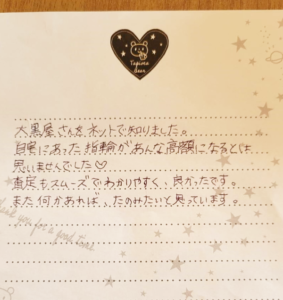 Tapioca
bear
大黒屋さんをネットで知りました。
自宅にあった指輪があんな高額になるとは
思いませんでした♡
査定もスムーズでわかりやすく、良かったです。
また何かあれば、たのみたいと思っています。
you for a good time!